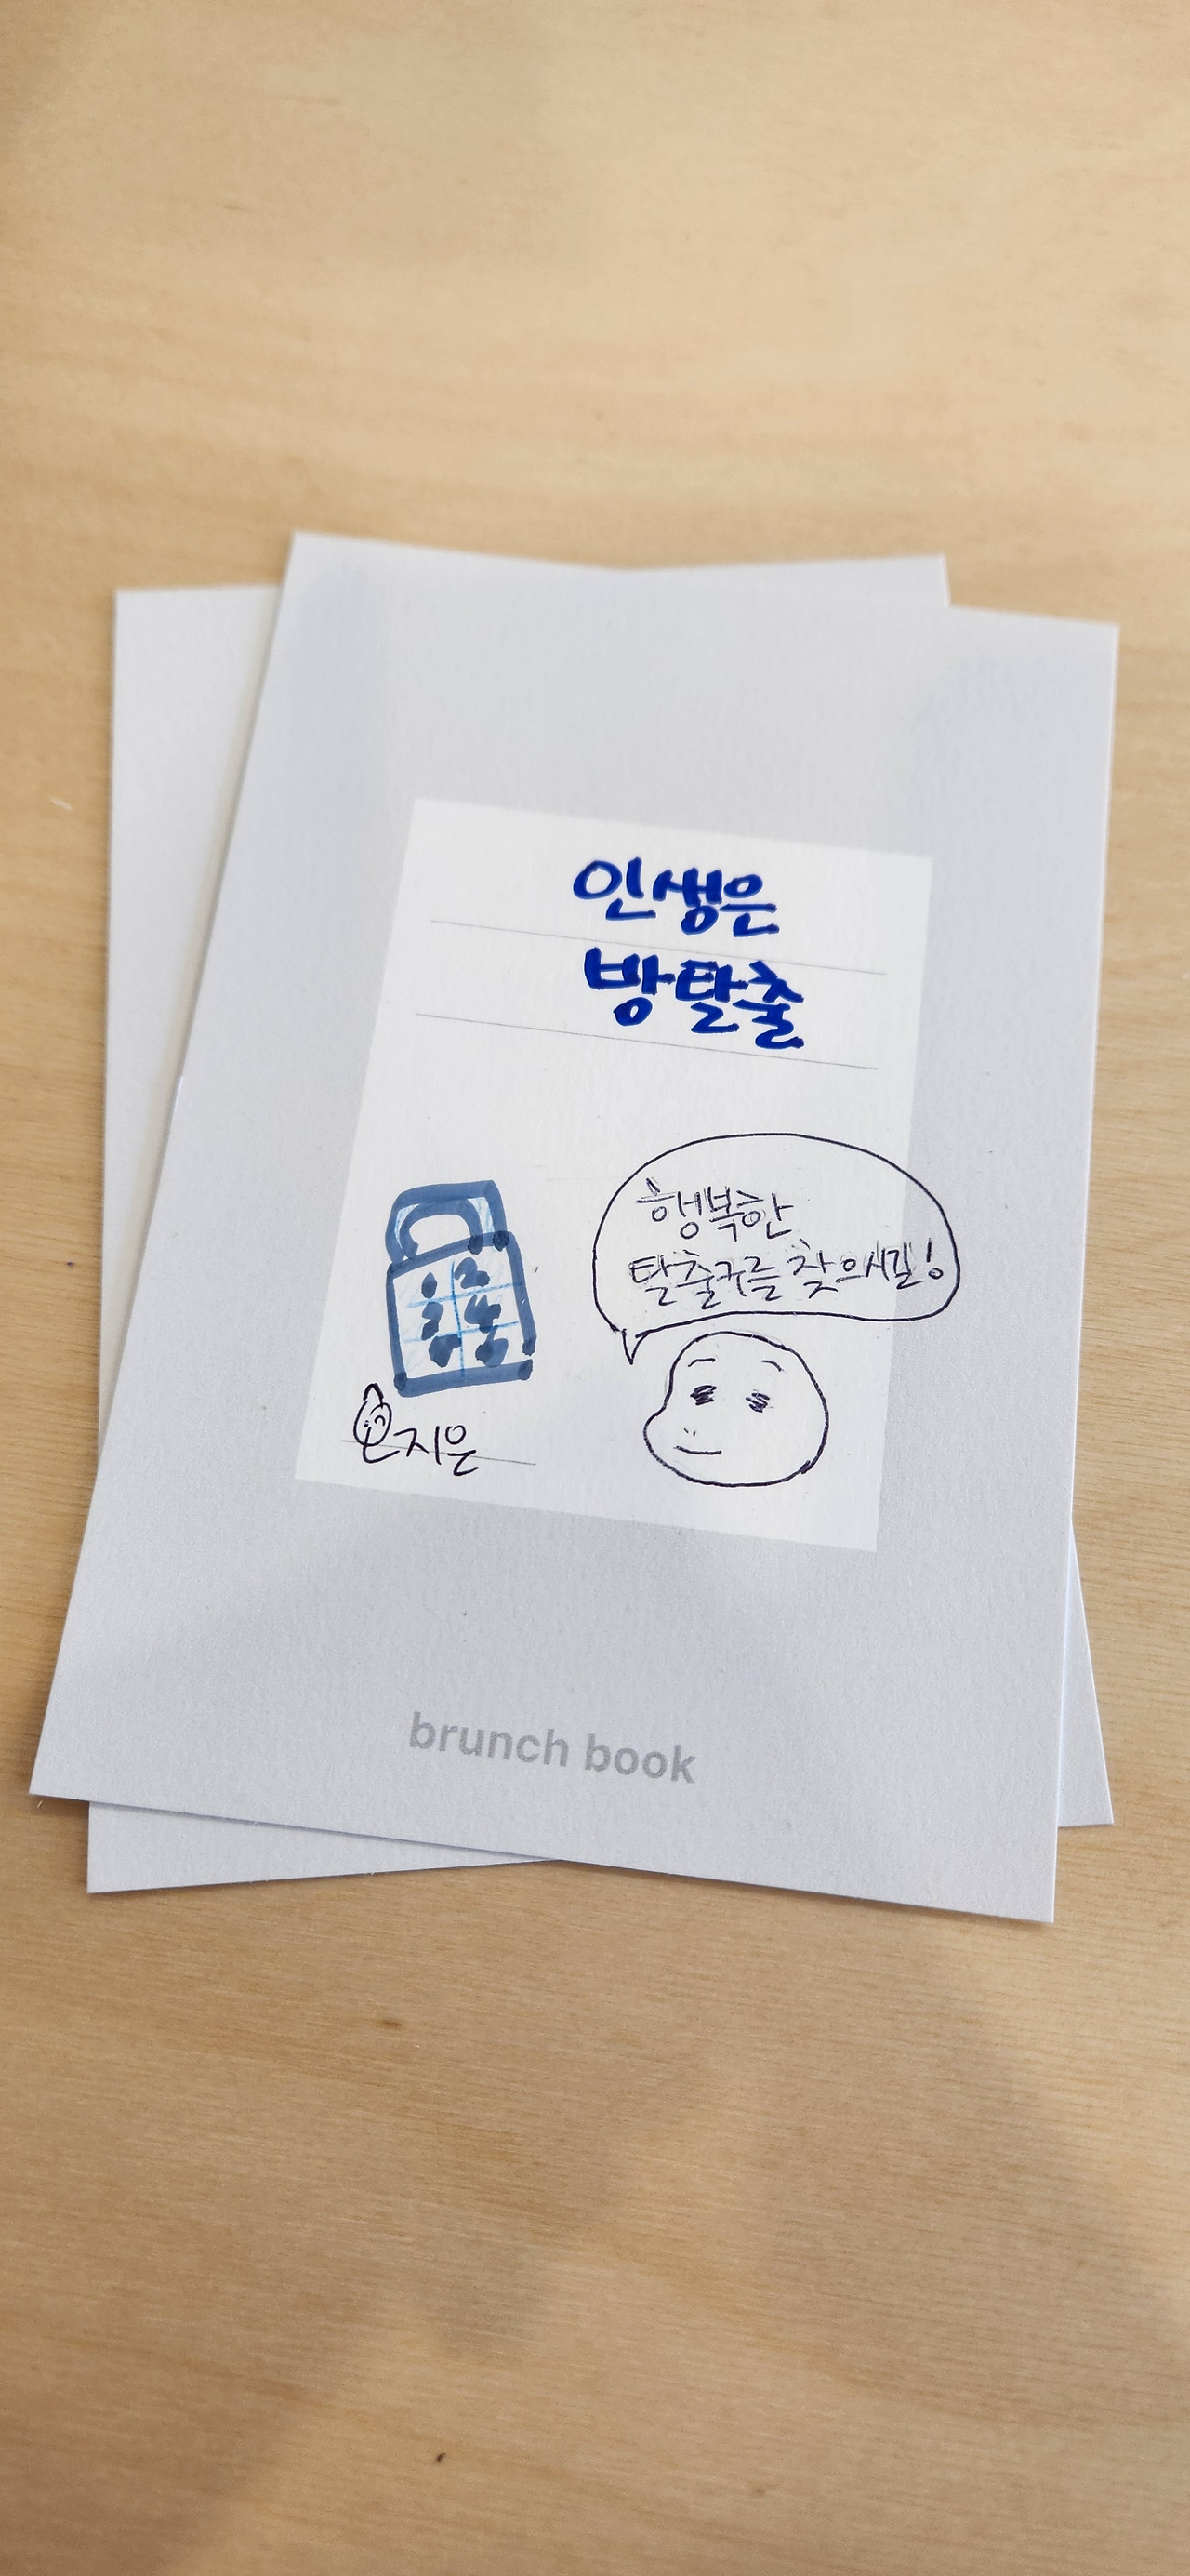 인생은
방탈출
행복한
탈출구를 찾으시길!
1 2
3 4
지은
brunch book